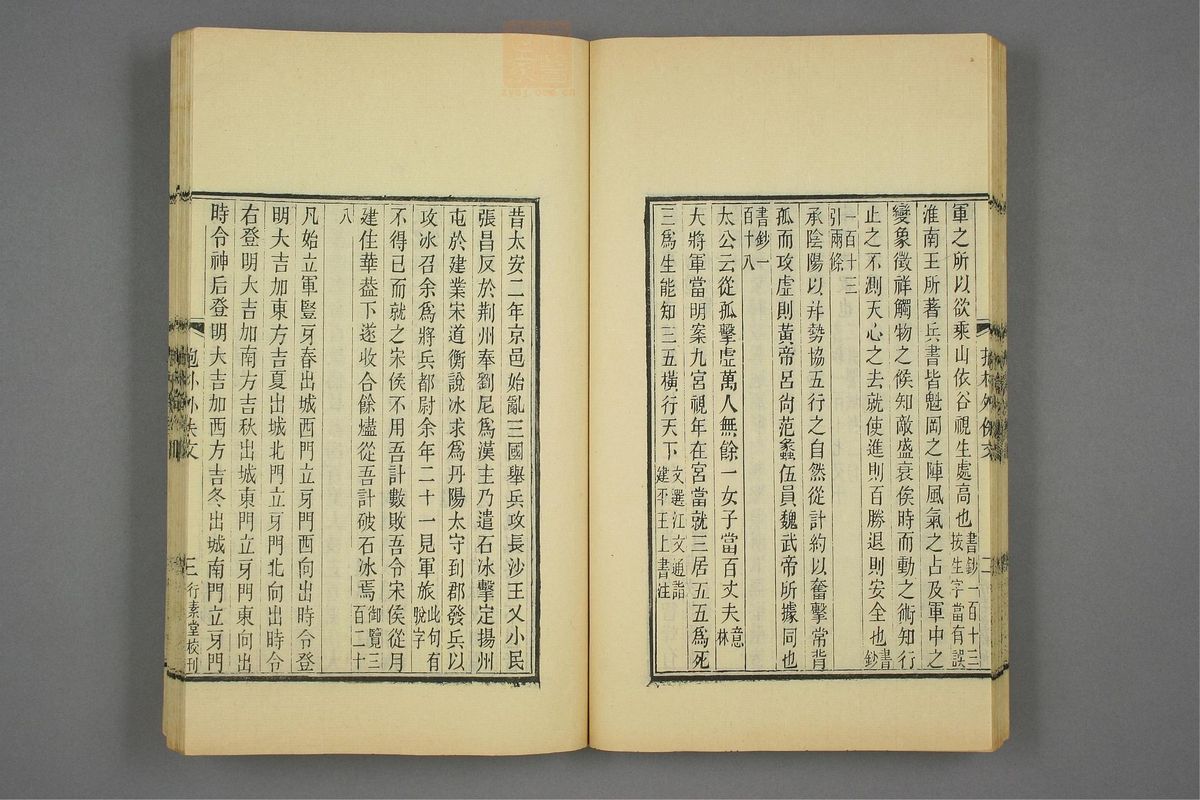 軍之所以欲乘山依谷視生處高也書鈔一百十三按生字當有誤
淮南王所著兵書皆魁岡之陣風氣之占及軍中之
變象徵祥觸物之候知敵盛衰俟時而動之術知行
止之不測天心之去就使進則百勝退則安全也書鈔
一百十三引兩條
承陰陽以并勢協五行之自然從計約以奮擊常背
孤而攻虛則黃帝呂尙范蠡伍員魏武帝所據同也
書鈔一百十八
太公云從孤擊虛萬人無餘一女子當百丈夫意林
大將軍當明案九宮視年在宮當就三居五五爲死
三爲生能知三五橫行天下文選江文通詣建平王上書注
二
昔太安二年京邑始亂三國舉兵攻長沙王乂小民
張昌反於荆州奉劉尼爲漢主乃遣石冰擊定揚州
屯於建業宋道衡說冰求爲丹陽太守到郡發兵以
攻冰召余爲將兵都尉余年二十一見軍旅此句有脫字
不得已而就之宋侯不用吾計數敗吾令宋侯從月
建住華葢下遂收合餘燼從吾計破石冰焉御覽三百二十
八
凡始立軍豎牙春出城西門立牙門西向出時令登
明大吉加東方吉夏出城北門立牙門北向出時令
右登明大吉加南方吉秋出城東門立牙門東向出
時令神后登明大吉加西方吉冬出城南門立牙門
抱朴外佚文
三
行素堂校刊